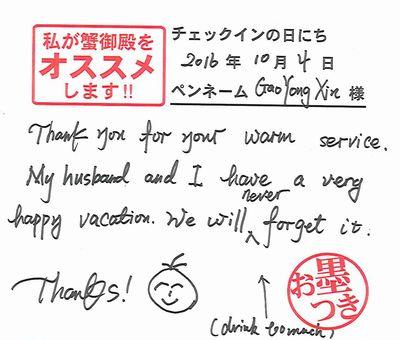 私が蟹御殿を
オススメ
します!!
チェックインの日にち
2016 年 10 月 4 日
ペンネーム GaoYong Xin 様
Thank you for your warm service.
My husband and I have a very
happy vacation. We will never forget it.
Thanks!
お墨つき
(drink